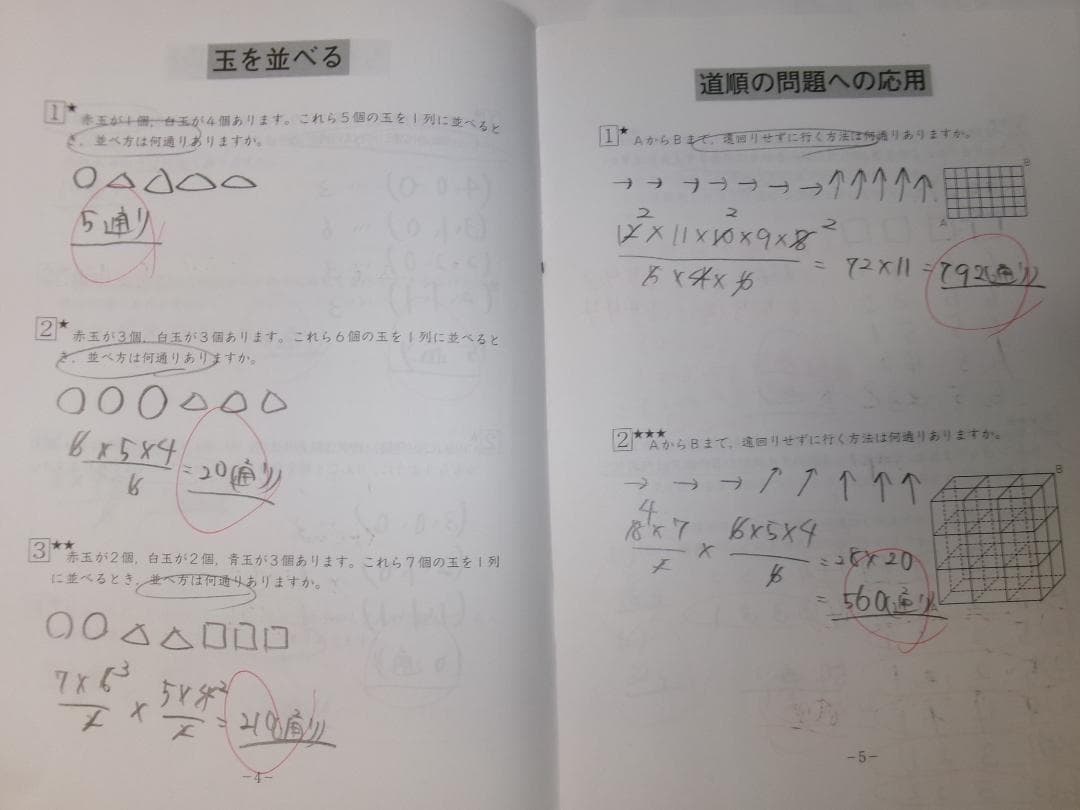 玉を並べる
1★ 赤玉が1個，白玉が4個あります。これら5個の玉を1列に並べると
き，並べ方は何通りありますか。
5通り
2★ 赤玉が3個，白玉が3個あります。これら6個の玉を1列に並べると
き，並べ方は何通りありますか。
6×5×4
6
=20(通り)
3★★ 赤玉が2個，白玉が2個，青玉が3個あります。これら7個の玉を1列
に並べるとき，並べ方は何通りありますか。
7×6 3
2
×
5×4 2
2
= 210(通り)
-4-
道順の問題への応用
1★ AからBまで，遠回りせずに行く方法は何通りありますか。
B
A
→ → → → → → → ↑ ↑ ↑ ↑ ↑
2 2 2
12×11×10×9×8
5×4×6
= 72×11 = 792(通り)
2★★★ AからBまで，遠回りせずに行く方法は何通りありますか。
B
→ → → ↗ ↗ ↑ ↑ ↑
4
8×7
2
×
6×5×4
6
=28×20
= 560(通り)
-5-